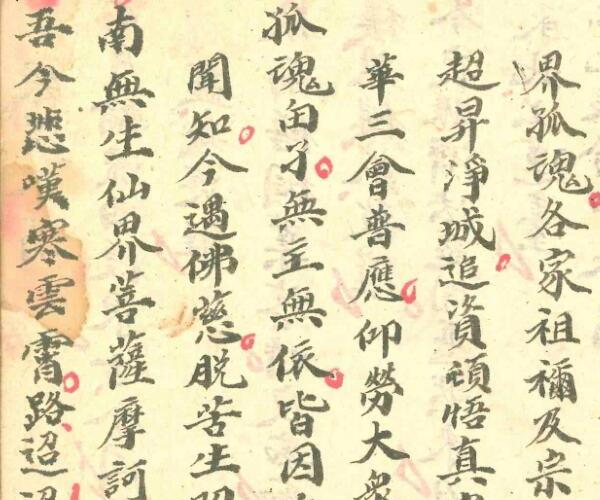 界孤魂各家祖禰及宗
超昇淨城追資頓悟真
華三會普應仰勞大衆
孤魂由子無主無依皆因
聞知今遇佛慈脱苦生
南無生仙界菩薩摩訶
吾今悲嘆寒雲霄路迢